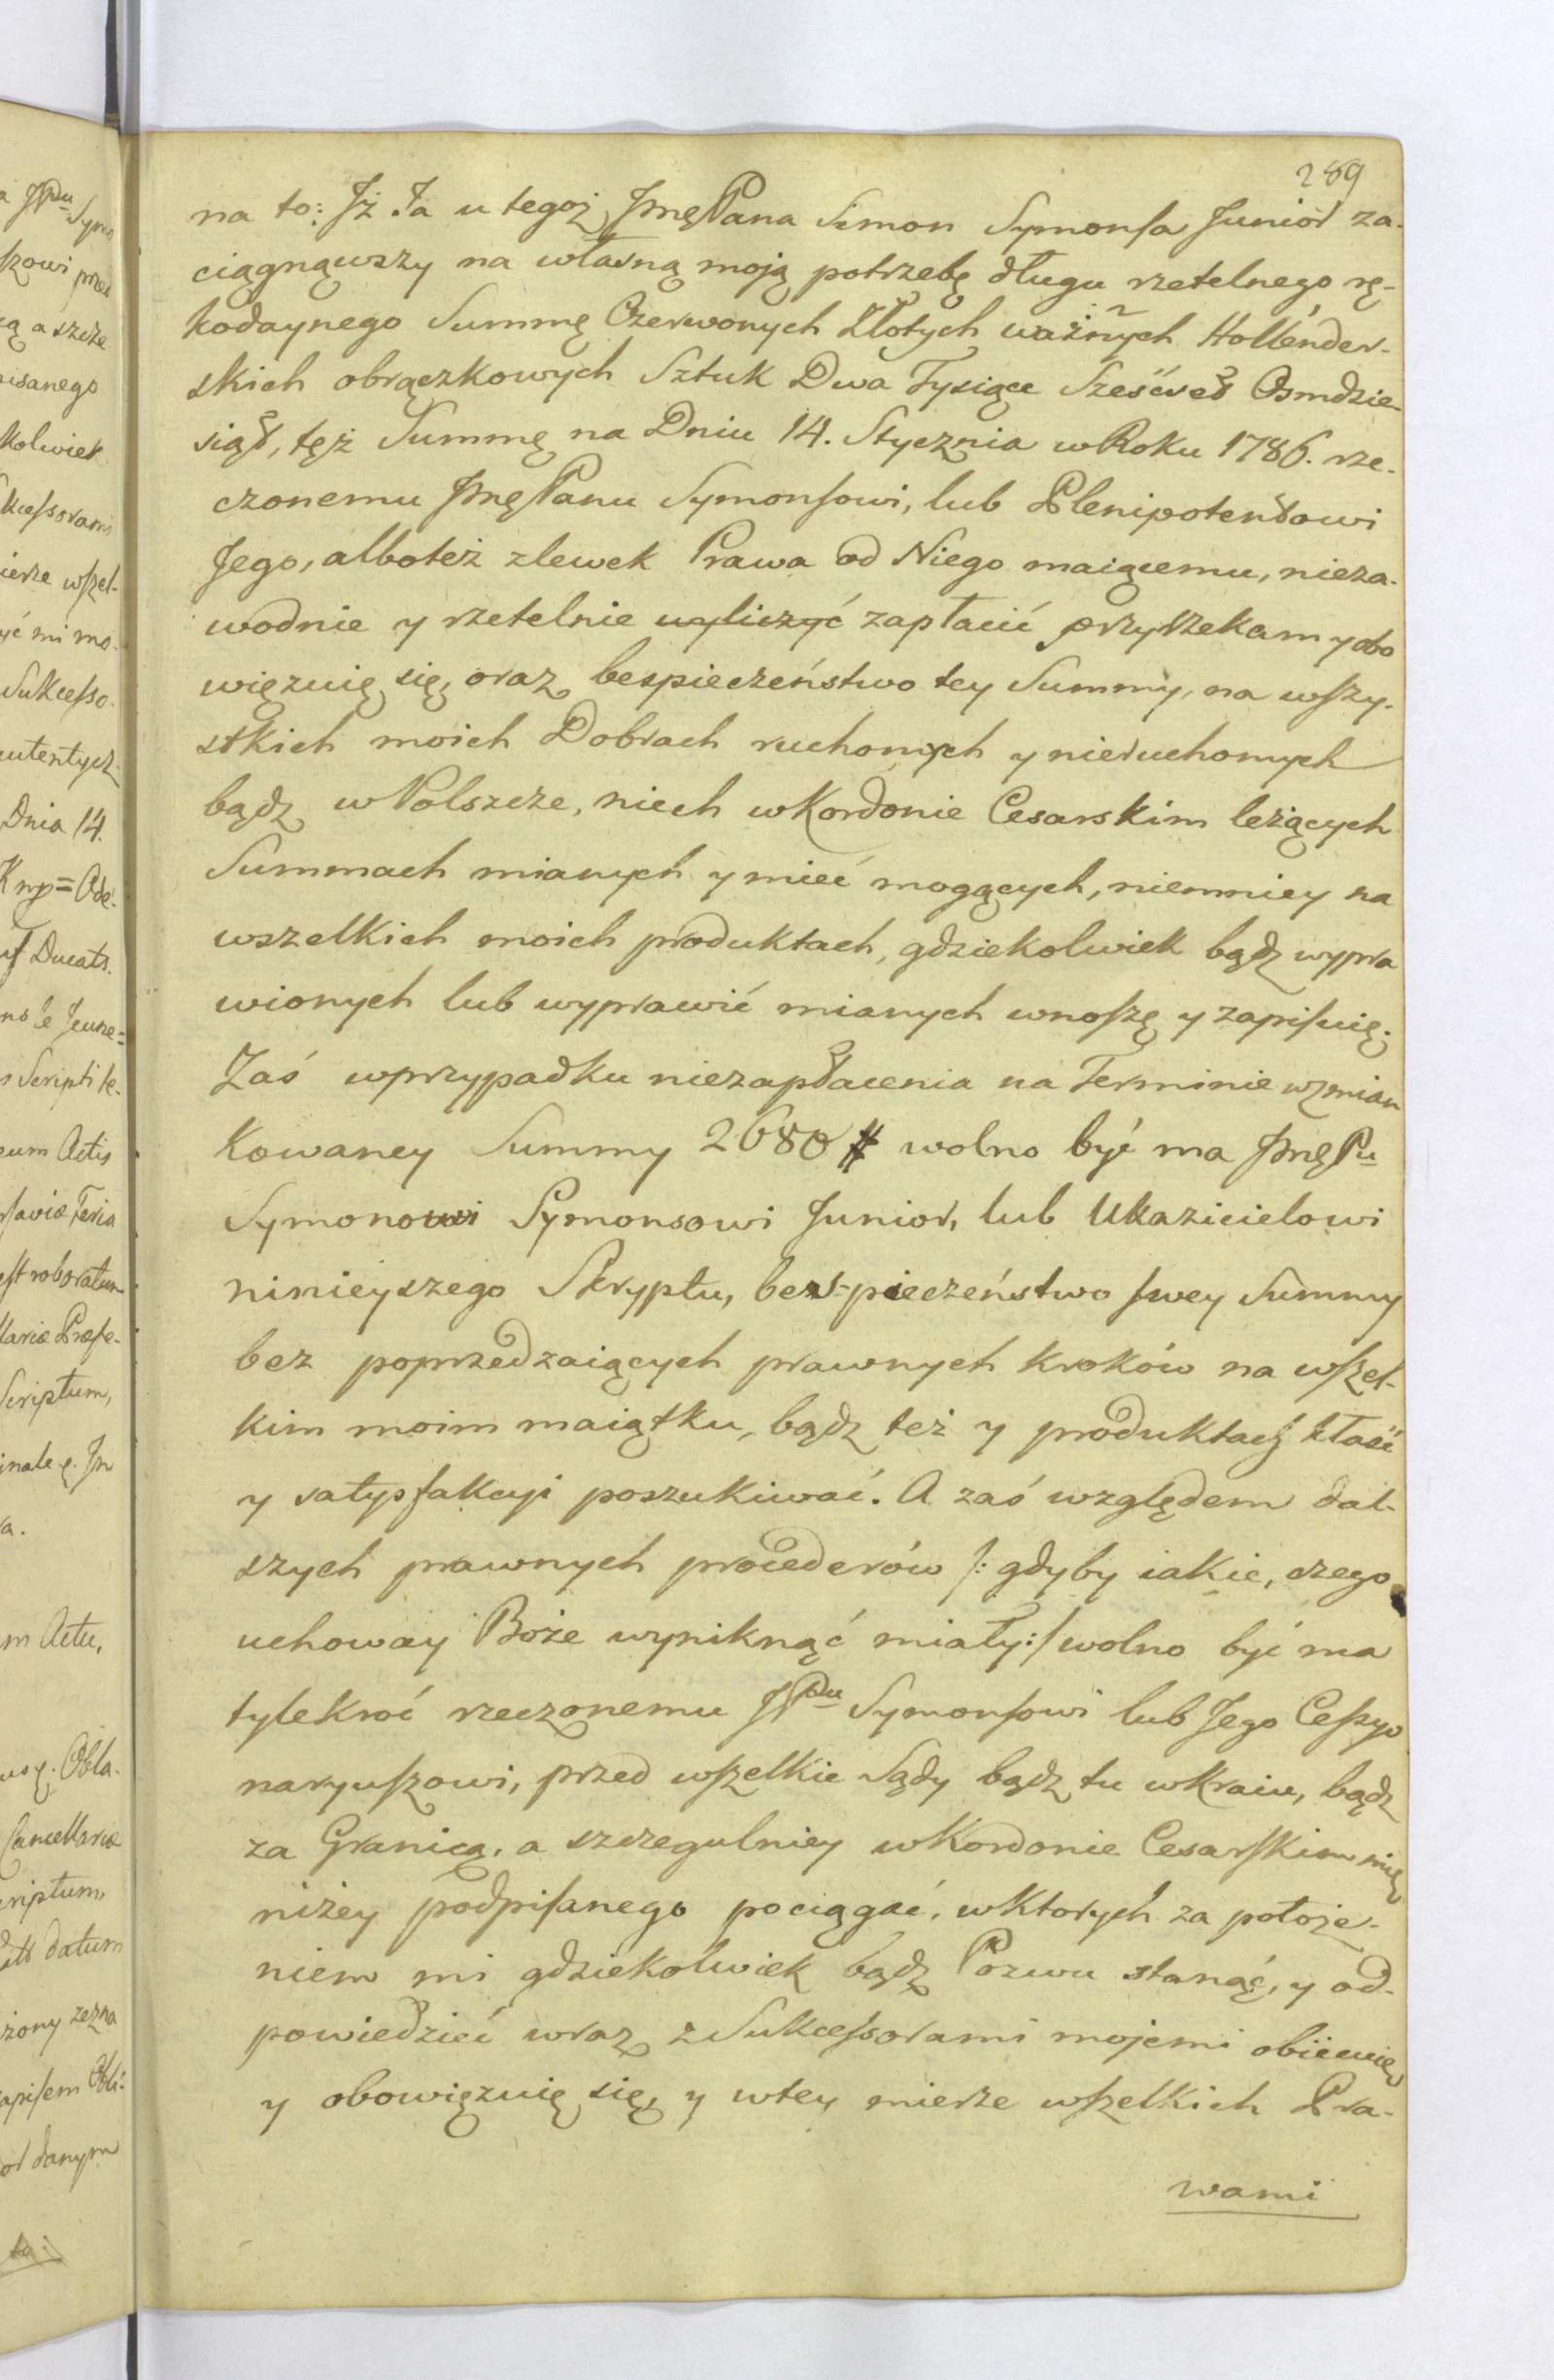 289
na to: Jż Ja u tegoż JmęPana Simon Symonsa Junior za-
ciągnąwszy na własną moją potrzebę długu rzetelnego rę-
kodaynego Summę Czerwonych Złotych ważnych Hollender-
skich obrączkowych Sztuk Dwa Tysiące Sześćset Osmdzie-
siąt, tęż Summę na Dniu 14. Stycznia w Roku 1786. rze-
czonemu JmęPanu Symonsowi, lub Plenipotentowi
Jego, alboteż zlewek Prawa od Niego maiącemu, nieza-
wodnie y rzetelnie wyliczyć zapłacić przyrzekam y obo
więzuię się, oraz bespieczeństwo tey Summy, na wszy-
stkich moich Dobrach ruchomych y nieruchomych
bądz w Polszcze, niech w Kordonie Cesarskim leżących
Summach mianych y mieć mogących, niemniey na
wszelkich moich produktach, gdziekolwiek bądz wypra
wionych lub wyprawić mianych wnoszę y zapisuię.
Zaś w przypadku niezapłacenia na Terminie wzmian
kowaney Summy 2680 # wolno być ma JmęPu
Symonowi Symonsowi Junior, lub Ukazicielowi
ninieyszego Skryptu, bes-pieczeństwo swey Summy
bez poprzedzaiących prawnych kroków na wszel-
kim moim maiątku, bądz też y produktach kłaść
y satysfakcyi poszukiwać. A zaś względem dal-
szych prawnych procederów /: gdyby iakie, czego
uchoway Boże wyniknąć miały :/ wolno być ma
tylekroć rzeczonemu JPu Symonsowi lub Jego Cessyo
naryuszowi, przed wszelkie Sądy bądz tu w Kraiu, bądz
za Granicą, a szczegulniey w Kordonie Cesarskim mię
niżey podpisanego pociągać, w ktorych za położe-
niem mi gdziekolwiek bądz Pozwu stanąć, y od-
powiedzieć wraz z Sukcessorami mojemi obiecuię
y obowięzuię się, y w tey mierze wszelkich Pra-
wami